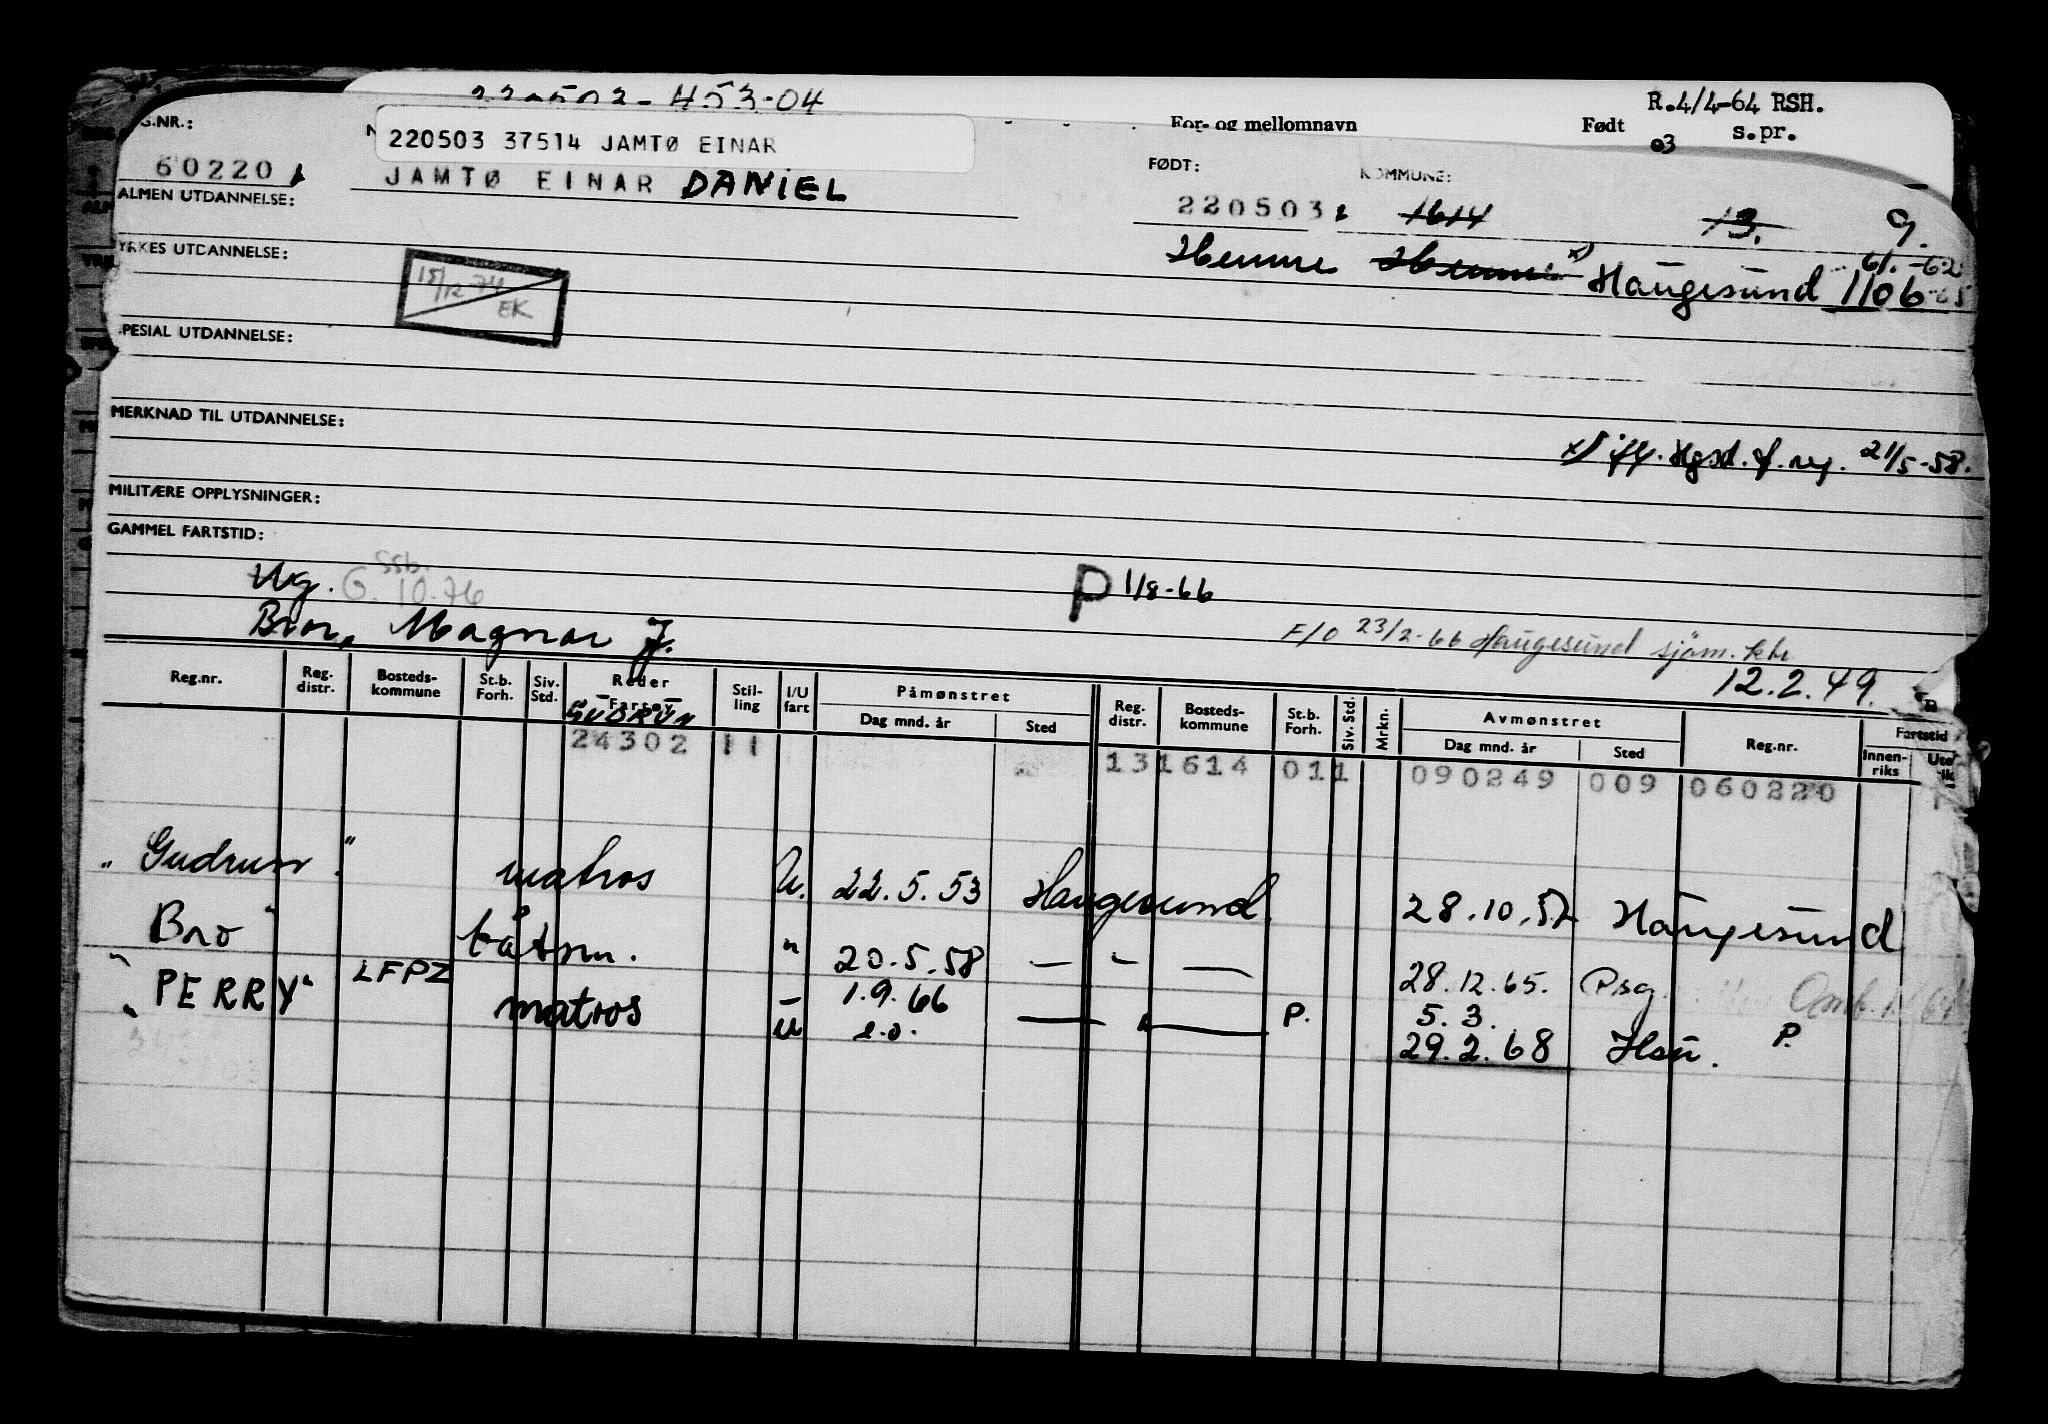 220503-453-04
R.4/4-64 RSH.
For- og mellomnavn Født s.pr.
03
220503 37514 JAMTØ EINAR
60220 JAMTØ EINAR DANIEL
FØDT: KOMMUNE:
220503 1614 13. 9.
ALMEN UTDANNELSE:
Hemne Haugesund 1106
YRKES UTDANNELSE:
15/12 74
EK
SPESIAL UTDANNELSE:
MERKNAD TIL UTDANNELSE:
x) iflg. Hgsd. f. reg. 21/5-58.
MILITÆRE OPPLYSNINGER:
GAMMEL FARTSTID:
Ug. ssb. G. 10.76
P 1/8-66
Bror, Magnar J.
F/O 23/2-66 Haugesund sjöm.ktr.
12.2.49.
Reg.nr. Reg. distr. Bosteds- kommune St.b. Forh. Siv. Std. Reder Fartøy Stil- ling I/U fart Påmønstret Dag mnd. år Sted Reg. distr. Bosteds- kommune St.b. Forh. Siv. Std. Mrkn. Avmønstret Dag mnd. år Sted Reg.nr. Fartstid Innen- riks
GUDRUN
24302 11 131614 011 090249 009 060220
"Gudrun" matros U. 22.5.53 Haugesund 28.10.57 Haugesund
Bro" båtsm. " 20.5.58 — " — 28.12.65. Psg.
"PERRY" LFPZ matros — 1.9.66 — " — P. 5.3.
U e.o. 29.2.68 Hsu. P.